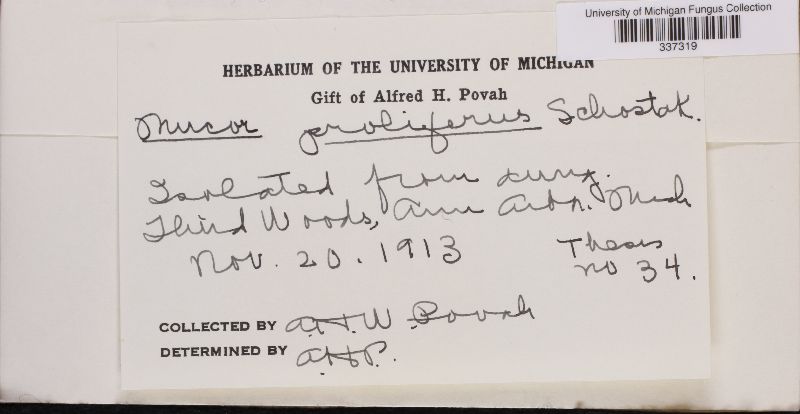 University of Michigan Fungus Collection
337319
HERBARIUM OF THE UNIVERSITY OF MICHIGAN
Gift of Alfred H. Povah
Mucor proliferus Schostak.
Isolated from dung.
Third Woods, Ann Arbor. Mich
Nov. 20. 1913
Thesis
no 34.
COLLECTED BY A.H.W Povah
DETERMINED BY A.H.P.